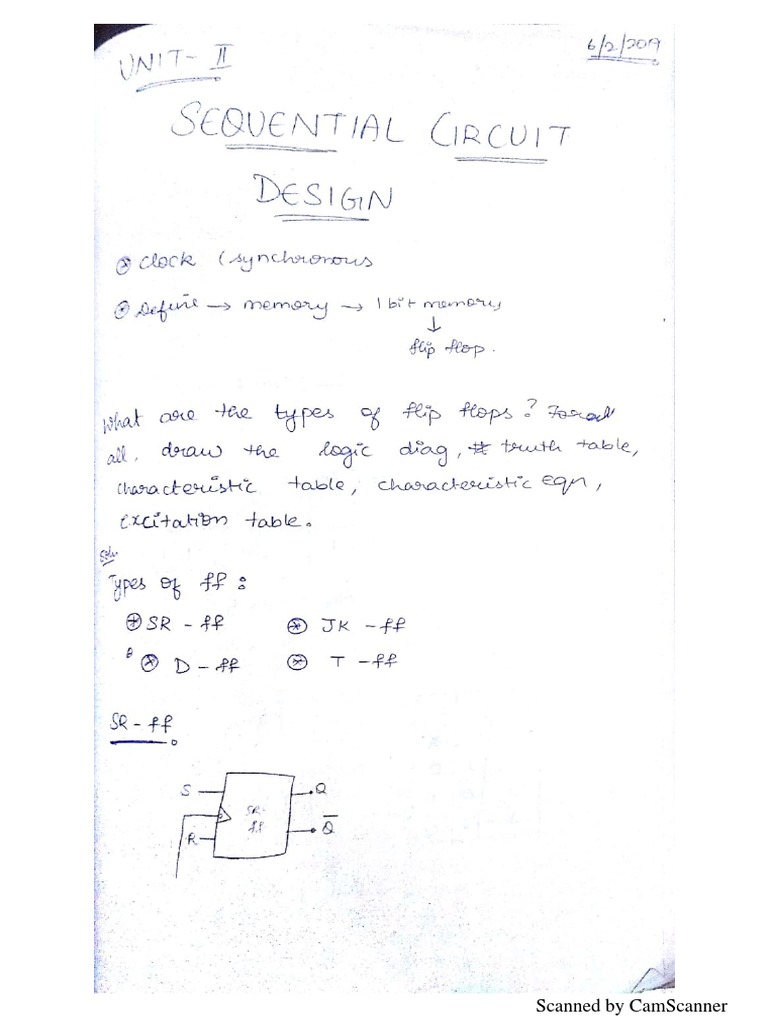 6/2/2019
UNIT - II
SEQUENTIAL CIRCUIT
DESIGN
clock (synchronous
Define → memory → 1 bit memory
↓
flip flop.
What are the types of flip flops? For
all, draw the logic diag, truth table,
characteristic table, characteristic eqn,
excitation table.
Soln
Types of ff :
SR - ff JK - ff
D - ff T - ff
SR - ff
S Q
SR-
ff
R Q̅
Scanned by CamScanner